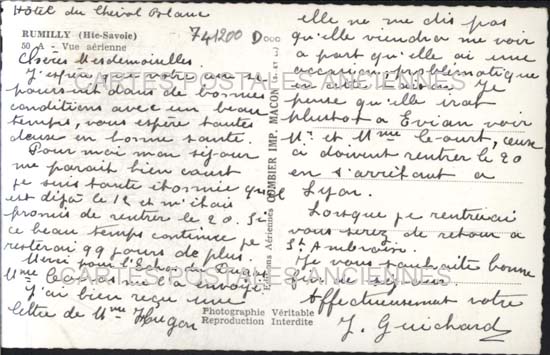 Hôtel du Cheval Blanc
RUMILLY (Hte-Savoie)
50 A - Vue aérienne
741200 D000
Chères Mesdemoiselles
J'espère que votre se
poursuit dans de bonnes
conditions avec un beau
temps, vous espère toutes
deux en bonne santé.
Pour moi mon séjour
me parait bien court
je suis toute étonnée qu'il
est déjà le 12 et m'étais
promis de rentrer le 20. Si
ce beau temps continue je
resterai 99 jours de plus.
Merci pour l'
Mme me l'a envoyé.
J'ai bien reçu une
lettre de Mme Hugon
elle ne me dis pas
qu'elle viendra me voir
a part qu'elle ai une
occasion, problématique
en cette saison. Je
pense qu'elle irat
plustot a Evian voir
Mr et Mme Court, ceux
ci doivent rentrer le 20
en s'arrêtant a
Lyon.
Lorsque je rentrerai
vous serez de retour a
St Ambroix.
Je vous souhaite bonne
fin de séjour
Affectueusement votre
J. Guichard
Editions Aériennes COMBIER IMP. MACON (S. et L.)
Photographie Véritable
Reproduction Interdite
CARTES POSTALES ANCIENNES
CARTES POSTALES ANCIENNES